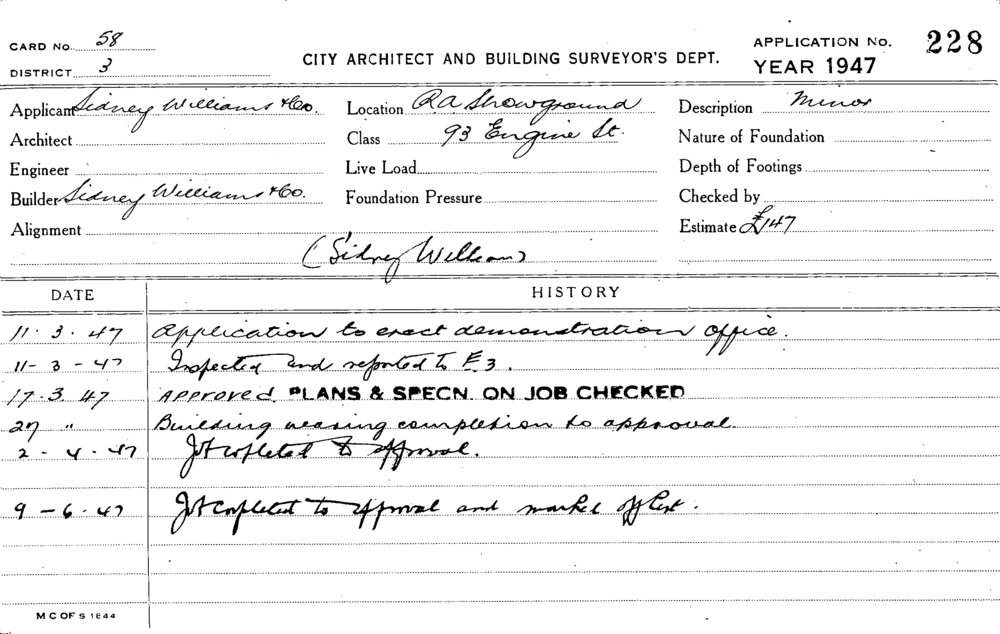 CARD No. 58
DISTRICT 3
CITY ARCHITECT AND BUILDING SURVEYOR'S DEPT.
APPLICATION No. 228
YEAR 1947
Applicant Sidney Williams & Co.
Location R.A. Showground
Description Minor
Architect
Class 93 Engine St.
Nature of Foundation
Engineer
Live Load
Depth of Footings
Builder Sidney Williams & Co.
Foundation Pressure
Checked by
Alignment
Estimate £147
(Sidney Williams)
DATE HISTORY
11. 3. 47 Application to erect demonstration office.
11- 3 - 47 Inspected and reported to E.3.
17. 3. 47 Approved. PLANS & SPECN. ON JOB CHECKED
27 " Building nearing completion to approval.
2 - 4 - 47 Job completed to approval.
9 - 6. 47 Job completed to approval and marked off
M C OF S 1844